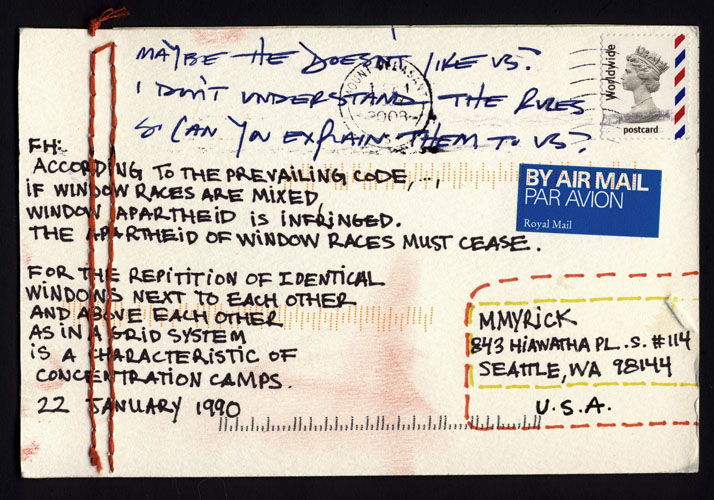 MAYBE HE DOESN'T LIKE US?
I DON'T UNDERSTAND THE RULES
SO CAN YOU EXPLAIN THEM TO US?
Worldwide
postcard
MOUNT PLEASANT
2008
FH:
ACCORDING TO THE PREVAILING CODE,...,
IF WINDOW RACES ARE MIXED,
WINDOW APARTHEID IS INFRINGED.
THE APARTHEID OF WINDOW RACES MUST CEASE.
BY AIR MAIL
PAR AVION
Royal Mail
FOR THE REPITITION OF IDENTICAL
WINDOWS NEXT TO EACH OTHER
AND ABOVE EACH OTHER
AS IN A GRID SYSTEM
IS A CHARACTERISTIC OF
CONCENTRATION CAMPS.
22 JANUARY 1990
MMYRICK
843 HIAWATHA PL. S. #114
SEATTLE, WA 98144
U.S.A.